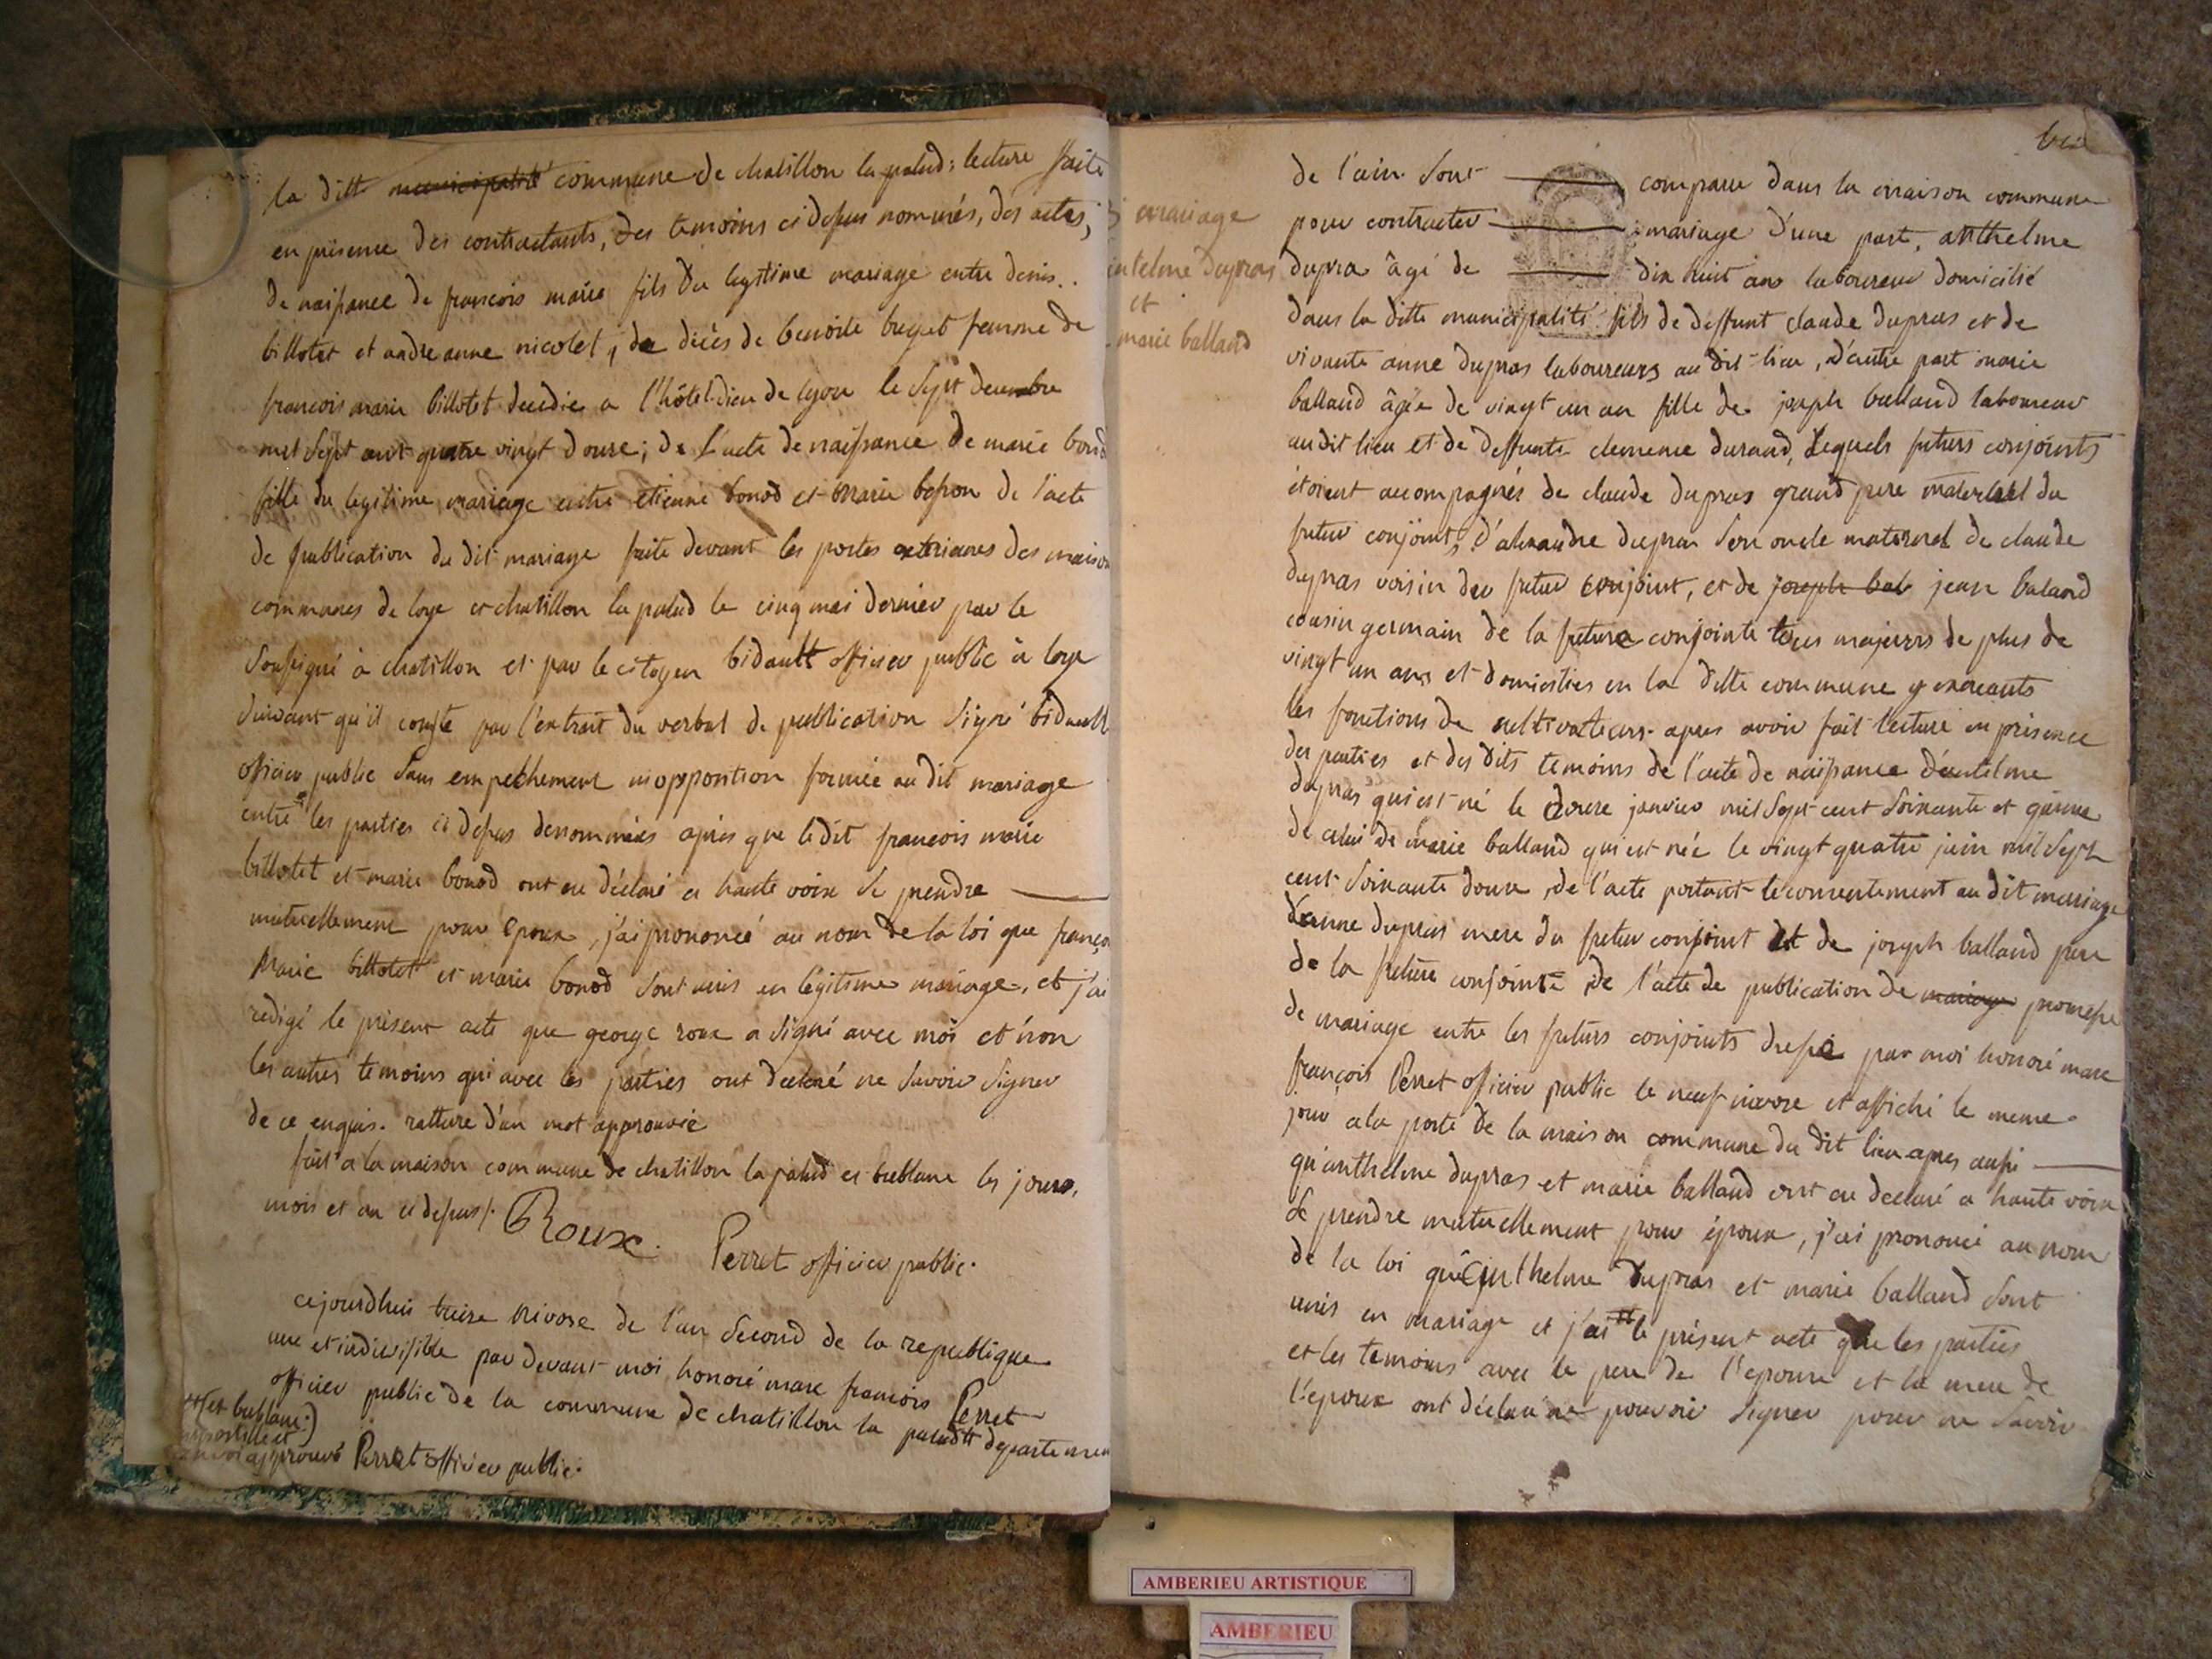 la ditte municipalité commune de chatillon la palud; lecture faite
en présence des contractants, des temoins ci dessus nommés, des actes,
de naissance de francois marie fils du legitime mariage entre denis
billotet et andreanne nicolet, de décès de benoite buget femme de
francois marie billotet decedée a l'hôtel dieu de lyon le sept decembre
mil sept cent quatre vingt douze; de l'acte de naissance de marie bonod
fille du legitime mariage entre etienne bonod et marie besson de l'acte
de publication du dit mariage faite devant les portes exterieures des maisons
communes de loye et chatillon la palud le cinq mai dernier par le
soussigné à chatillon et par le citoyen bidault officier public à loye
suivant qu'il conste par l'extrait du verbal de publication signé bidault
officier public sans empechement ni opposition formée au dit mariage
entre les parties ci dessus denommées après que ledit francois marie
billotet et marie bonod ont eu déclaré a haute voix se prendre
mutuellement pour epoux, j'ai prononcé au nom de la loi que françois
Marie billotet et marie bonod sont unis en légitime mariage, et j'ai
redigé le présent acte que george roux a signé avec moi et non
les autres temoins qui avec les parties ont declaré ne savoir signer
de ce enquis. ratture d'un mot approuvée
fait a la maison commune de chatillon la palud et bublane les jours,
mois et an ci dessus.
Roux. Perret officier public.
cejourdhui treize nivose de l'an second de la republique
une et indivisible par devant moi honoré marc francois Perret
officier public de la commune de chatillon la palud departement
(et bublane)
approuvé Perret officier public.
mariage
antelme dupras
et
marie balland
de l'ain sont comparu dans la maison commune
pour contracter mariage d'une part, anthelme
dupra âgé de dix huit ans laboureur domicilié
dans la ditte municipalité fils de deffunt claude dupras et de
vivante anne dupras laboureurs au dit lieu, d'autre part marie
balland âgée de vingt un an fille de joseph balland laboureur
audit lieu et de deffunte clemence durand, lequels futurs conjoints
étoient accompagnés de claude dupras grand pere maternel du
futur conjoint, d'alexandre dupra son oncle maternel de claude
dupras voisin du futur conjoint, et de joseph bal jean baland
cousin germain de la future conjointe tous majeurs de plus de
vingt un ans et domiciliés en la ditte commune y exercants
les fonctions de cultivateurs. apres avoir fait lecture en présence
des parties et des dits temoins de l'acte de naissance d'antelme
dupras qui est né le douze janvier mil sept cent soixante et quinze
de celui de marie balland qui est née le vingt quatre juin mil sept
cent soixante douze, de l'acte portant le consentement au dit mariage
d'anne dupras mere du futur conjoint et de joseph balland pere
de la future conjointe, de l'acte de publication de mariage promesse
de mariage entre les futurs conjoints dressé par moi honoré marc
françois Perret officier public le neuf nivose et affiché le meme
jour a la porte de la maison commune du dit lieu apres aussi
qu'anthelme dupras et marie balland ont eu declaré a haute voix
se prendre mutuellement pour époux, j'ai prononcé au nom
de la loi que anthelme dupras et marie balland sont
unis en mariage et j'ai le présent acte que les parties
et les temoins avec le pere de l'epouse et la mere de
l'epoux ont déclaré ne pouvoir signer pour ne savoir
AMBERIEU ARTISTIQUE
AMBERIEU